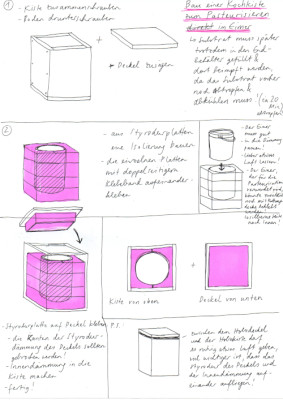 ① - Kiste zusammenschrauben
- Boden drunterschrauben
+
* Deckel besorgen
Bau einer Kochkiste
zum Pasteurisieren
direkt im Eimer
Substrat muss später
trotzdem in den End-
behälter gefüllt &
dort beimpft werden,
da das Substrat vorher
noch abtropfen &
abkühlen muss! (ca 20
Min
abtropfen!)
② - aus Styrodurplatten
eine Isolierung bauen
- die einzelnen Platten
mit doppelseitigem
Klebeband aufeinander-
kleben
- Der Eimer
muss gut
in die Dämmung
passen!
- lieber etwas
Luft lassen
- Der Eimer,
der für die
+
Kiste von oben
Deckel von unten
- Styrodurplatte auf Deckel kleben
- die Kanten der Styrodur-
dämmung des Deckels sollten
gebrochen werden!
- Innendämmung in die
Kiste machen
- fertig!
P.S.
zwischen dem Holzdeckel
und der Holzkiste darf
es ruhig etwas Luft geben,
viel wichtiger ist, dass das
Styrodur des Deckels und
der Innendämmung auf-
einander aufliegen!